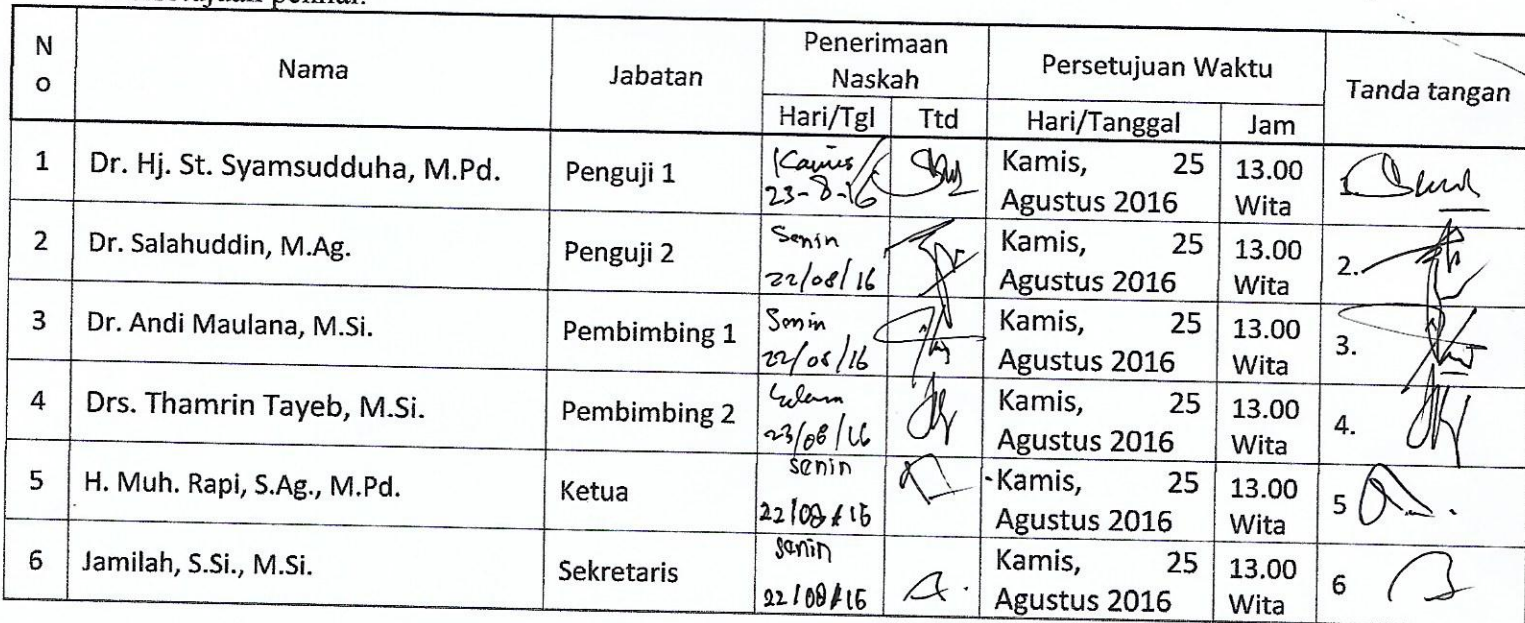 No Nama Jabatan Penerimaan Naskah Persetujuan Waktu Tanda tangan
Hari/Tgl Ttd Hari/Tanggal Jam
1 Dr. Hj. St. Syamsudduha, M.Pd. Penguji 1 Kamis 23-8-16 Kamis, 25 Agustus 2016 13.00 Wita 1.
2 Dr. Salahuddin, M.Ag. Penguji 2 Senin 22/08/16 Kamis, 25 Agustus 2016 13.00 Wita 2.
3 Dr. Andi Maulana, M.Si. Pembimbing 1 Senin 22/08/16 Kamis, 25 Agustus 2016 13.00 Wita 3.
4 Drs. Thamrin Tayeb, M.Si. Pembimbing 2 23/08/16 Kamis, 25 Agustus 2016 13.00 Wita 4.
5 H. Muh. Rapi, S.Ag., M.Pd. Ketua senin 22/08/16 Kamis, 25 Agustus 2016 13.00 Wita 5
6 Jamilah, S.Si., M.Si. Sekretaris senin 22/08/16 Kamis, 25 Agustus 2016 13.00 Wita 6